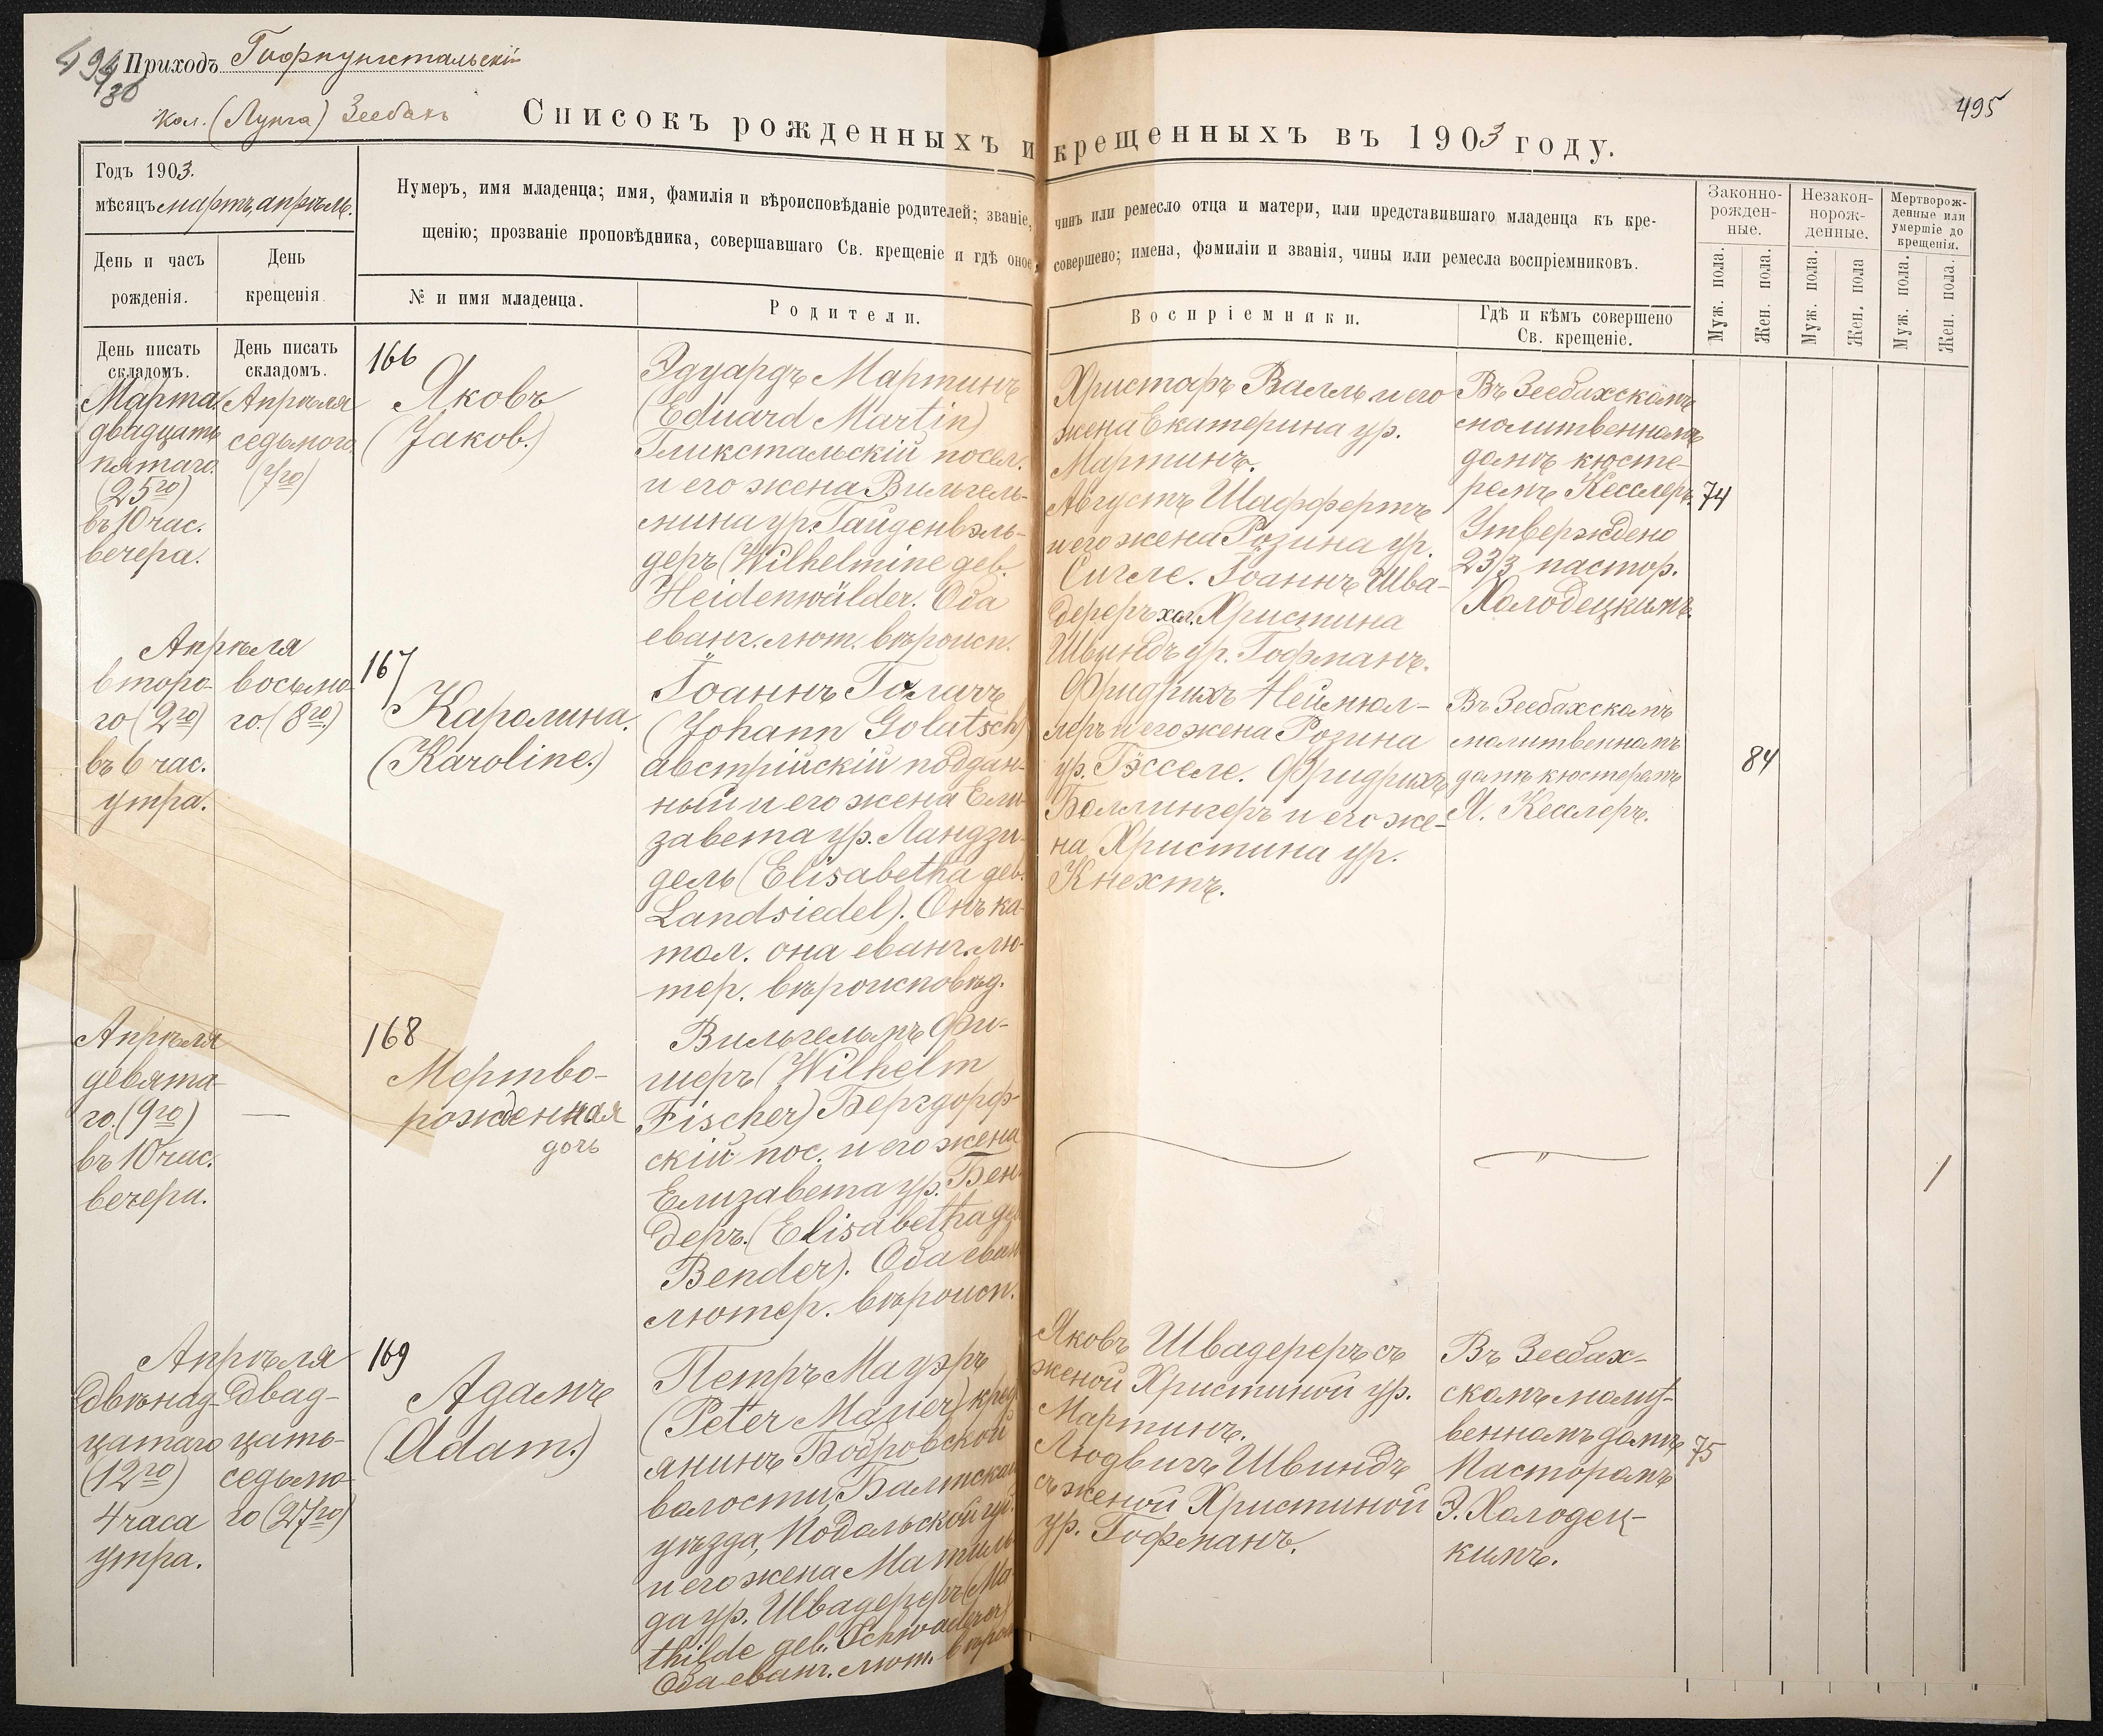 494
/30
Приходъ Гофнунгстальскій
кол. (Лунга) Зеебахъ
495
Списокъ рожденныхъ и крещенныхъ въ 1903 году.
Годъ 1903.
мѣсяцъ мартъ, апрѣль.
День и часъ рожденія.
День крещенія
Нумеръ, имя младенца; имя, фамилія и вѣроисповѣданіе родителей; званіе, чинъ или ремесло отца и матери, или представившаго младенца къ кре-
щенію; прозваніе проповѣдника, совершавшаго Св. крещеніе и гдѣ оное совершено; имена, фамиліи и званія, чины или ремесла воспріемниковъ.
№ и имя младенца.
Родители.
Воспріемники.
Гдѣ и кѣмъ совершено
Св. крещеніе.
Законно-
рожден-
ные.
Незакон-
норож-
денные.
Мертворож-
денные или
умершіе до
крещенія.
Муж. пола.
Жен. пола.
Муж. пола.
Жен. пола
Муж. пола.
Жен. пола.
День писать
складомъ.
День писать
складомъ.
Марта
двадцать
пятаго.
(25го)
въ 10 час.
вечера.
Апрѣля
седьмого
(7го)
166
Яковъ
(Jakob.)
Эдуардъ Мартинъ
(Eduard Martin)
Гликстальскій посел.
и его жена Вильгель-
мина ур. Гайденвэль-
деръ (Wilhelmine geb.
Heidenwälder. Оба
еванг. лют. вѣроисп.
Христофъ Валль и его
жена Екатерина ур.
Мартинъ.
Августъ Шаффертъ
и его жена Розина ур.
Сигле. Іоаннъ Шва-
дереръ хол. Христина
Швиндъ ур. Гофманъ.
Въ Зеебахскомъ
молитвенномъ
домѣ кюсте-
ремъ Кесслеръ.
Утверждено
23/3 пастор.
Холодецкимъ.
74
Апрѣля
второ-
го (2го)
въ 6 час.
утра.
восьмо-
го. (8го.)
167
Каролина.
(Karoline.)
Іоаннъ Голачъ
(Johann Golatsch)
австрійскій поддан-
ный и его жена Ели-
завета ур. Ландзи-
дель (Elisabetha geb.
Landsiedel). Онъ ка-
тол. она еванг. лю-
тер. вѣроисповѣд.
Фридрихъ Неймюл-
леръ и его жена Розина
ур. Гэсселе. Фридрихъ
Боллингеръ и его же-
на Христина ур.
Кнехтъ.
Въ Зеебахскомъ
молитвенномъ
домѣ кюстеромъ
Я. Кесслеръ.
84
Апрѣля
девята-
го. (9го)
въ 10 час.
вечера.
—
168
Мертво-
рожденная
дочь
Вильгельмъ Фи-
шеръ (Wilhelm
Fischer) Бергдорф-
скій пос. и его жена
Елизавета ур. Бен-
деръ. (Elisabetha geb
Bender). Оба еван
лютер. вѣроисп.
1
Апрѣля
двѣнад-
цатаго
(12го)
4 часа
утра.
двад-
цать-
седьмо-
го (27го)
169
Адамъ
(Adam.)
Петръ Мауэръ
(Peter Mauer) крест
янинъ Бобровской
волости, Балтскаго
уѣзда, Подольской губ.
и его жена Матиль
да ур. Швадереръ (Ma
thilde geb. Schwaderer)
Оба еванг. лют. вѣрои
Яковъ Швадереръ съ
женой Христиной ур.
Мартинъ.
Людвигъ Швиндъ
съ женой Христиной
ур. Гофманъ.
Въ Зеебах-
скомъ молит-
венномъ домѣ
Пасторомъ
Э. Холодец-
кимъ.
75